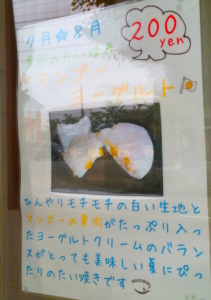 7月☆8月
200
yen
夏のたい焼き
マンゴー
ヨーグルト
ひんやりモチモチの白い生地と
マンゴーの果肉がたっぷり入っ
たヨーグルトクリームのバラン
スがとっても美味しい夏にぴっ
たりのたい焼きです